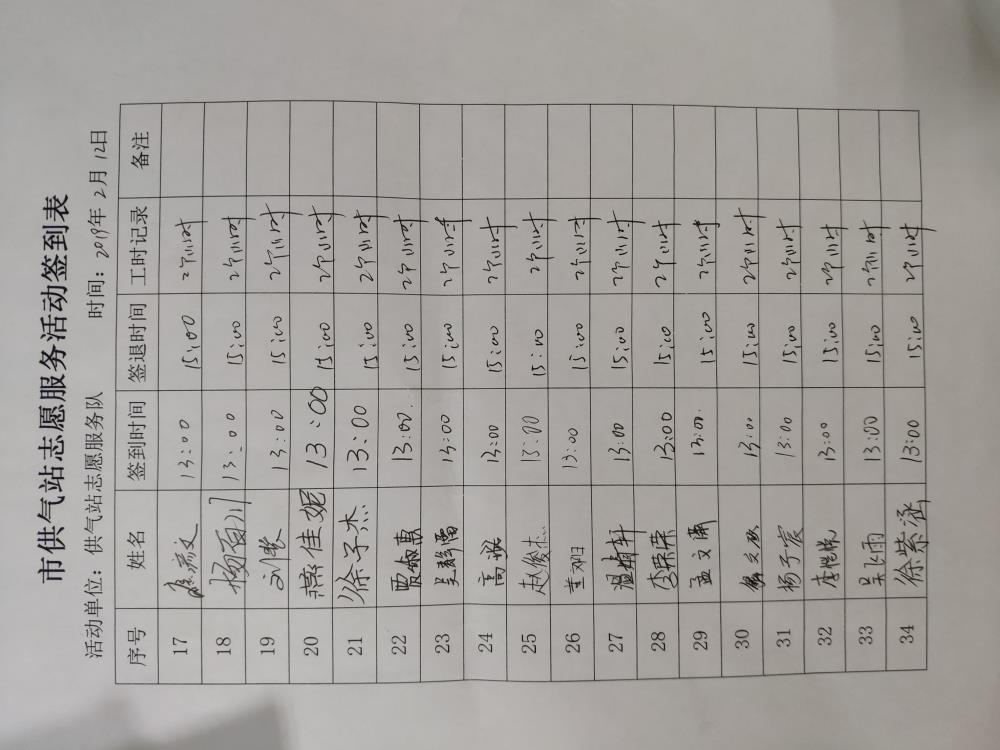 市供气站志愿服务活动签到表
活动单位：供气站志愿服务队 时间：2019年2月12日
序号 姓名 签到时间 签退时间 工时记录 备注
17 13:00 15:00 2个小时
18 杨百川 13:00 15:00 2个小时
19 13:00 15:00 2个小时
20 燕佳妮 13:00 15:00 2个小时
21 徐子杰 13:00 15:00 2个小时
22 13:00. 15:00 2个小时
23 13:00 15:00 2个小时
24 高 13:00 15:00 2个小时
25 赵俊杰 13:00 15:00 2个小时
26 13:00 15:00 2个小时
27 13:00 15:00 2个小时
28 李荣荣 13:00 15:00 2个小时
29 孟文 13:00. 15:00 2个小时
30 13:00 15:00 2个小时
31 杨子宸 13:00 15:00 2个小时
32 13:00 15:00 2个小时
33 吴飞雨 13:00 15:00 2个小时
34 徐紫涵 13:00 15:00 2个小时